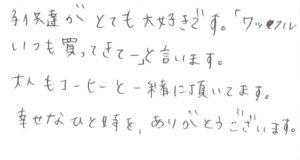 子供達が とても 大好きです。「ワッフル
いつも 買ってきてー」と言います。
大人もコーヒーと一緒に頂いてます。
幸せなひと時を、ありがとうございます。